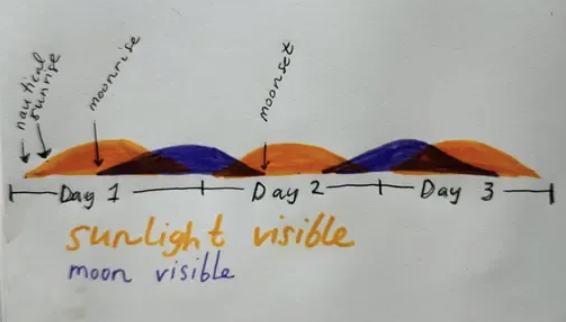 nautical
sunrise
moonrise
moonset
Day 1
Day 2
Day 3
sunlight visible
moon visible